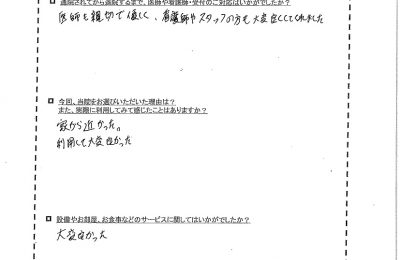 通院されてから退院するまで、医師や看護師・受付のご対応はいかがでしたか？
医師も親切で優しく、看護師やスタッフの方も大変良くしてくれました
今回、当院をお選びいただいた理由は？
また、実際に利用してみて感じたことはありますか？
家から近かった。
利用して大変良かった
設備やお部屋、お食事などのサービスに関してはいかがでしたか？
大変良かった